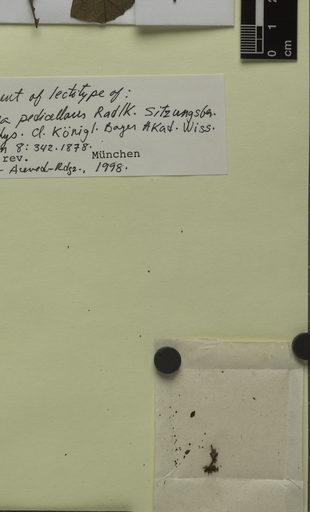 0 1 2
cm
of lectotype of:
pedicellaris Radlk. Sitzungsber.
Cl. Königl. Bayer Akad. Wiss.
8: 342. 1878.
rev. München
Acevedo-Rdgz., 1998.